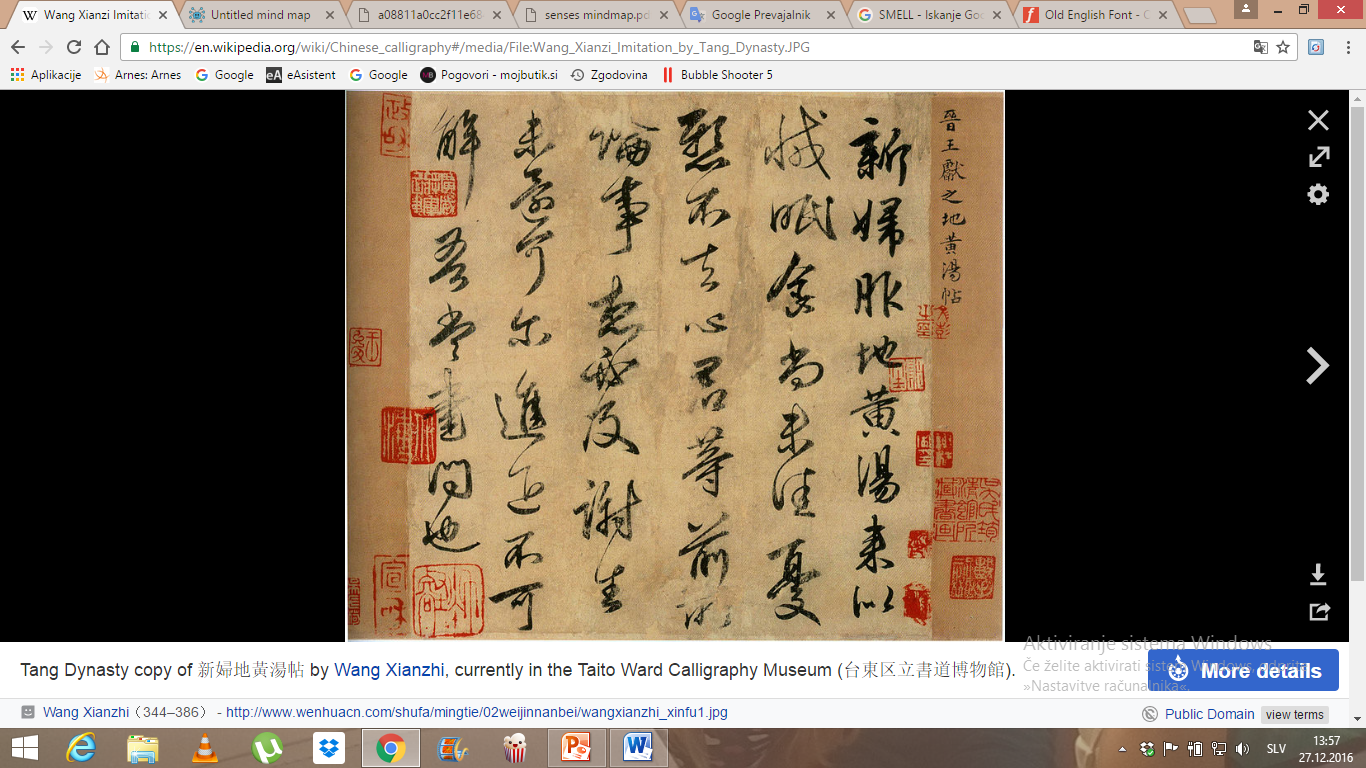 Wang Xianzi Imitatio
Untitled mind map
a08811a0cc2f11e68
senses mindmap.pd
Google Prevajalnik
SMELL - Iskanje Goo
Old English Font - C
https://en.wikipedia.org/wiki/Chinese_calligraphy#/media/File:Wang_Xianzi_Imitation_by_Tang_Dynasty.JPG
Aplikacije
Arnes: Arnes
Google
eAsistent
Google
Pogovori - mojbutik.si
Zgodovina
Bubble Shooter 5
晉王獻之地黃湯帖
新婦服地黃湯來似
減眠食尚未佳憂
懸不去心君等前所
論事想必及謝生
未還可尔進退不可
解吾當書問也
Tang Dynasty copy of 新婦地黃湯帖 by Wang Xianzhi, currently in the Taito Ward Calligraphy Museum (台東区立書道博物館).
More details
Aktiviranje sistema Windows
Če želite aktivirati sistem Windows, odprite
»Nastavitve računalnika«.
Wang Xianzhi（344–386） - http://www.wenhuacn.com/shufa/mingtie/02weijinnanbei/wangxianzhi_xinfu1.jpg
Public Domain
view terms
SLV
13:57
27.12.2016